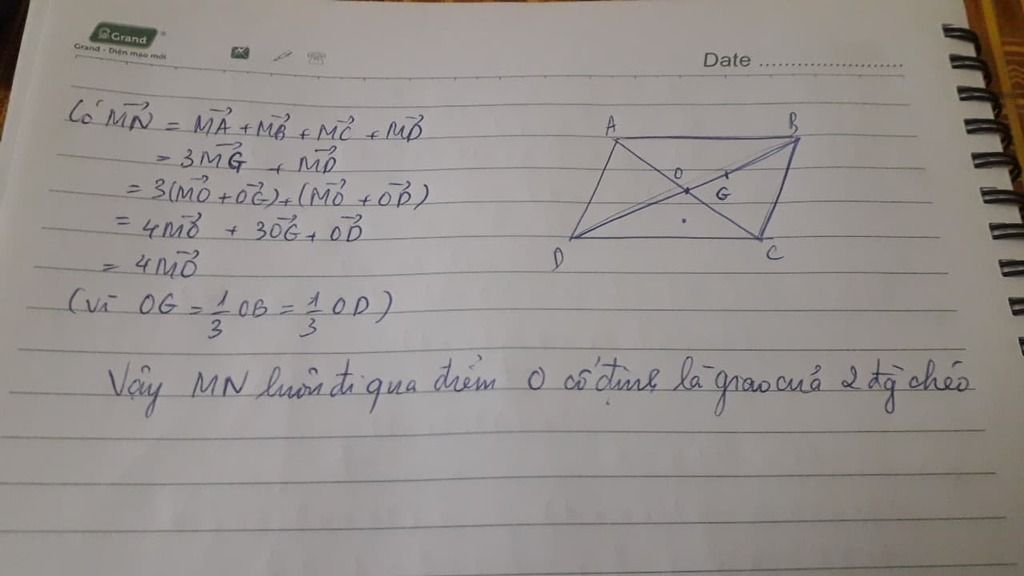 Grand
Grand - Diện mạo mới
Date
Có MN⃗ = MA⃗ + MB⃗ + MC⃗ + MD⃗
= 3MG⃗ + MD⃗
= 3(MO⃗ + OG⃗) + (MO⃗ + OD⃗)
= 4MO⃗ + 3OG⃗ + OD⃗
= 4MO⃗
(Vì OG = 1/3 OB = 1/3 OD)
A B
O G
D C
Vậy MN luôn đi qua điểm O cố định là giao của 2 đg chéo